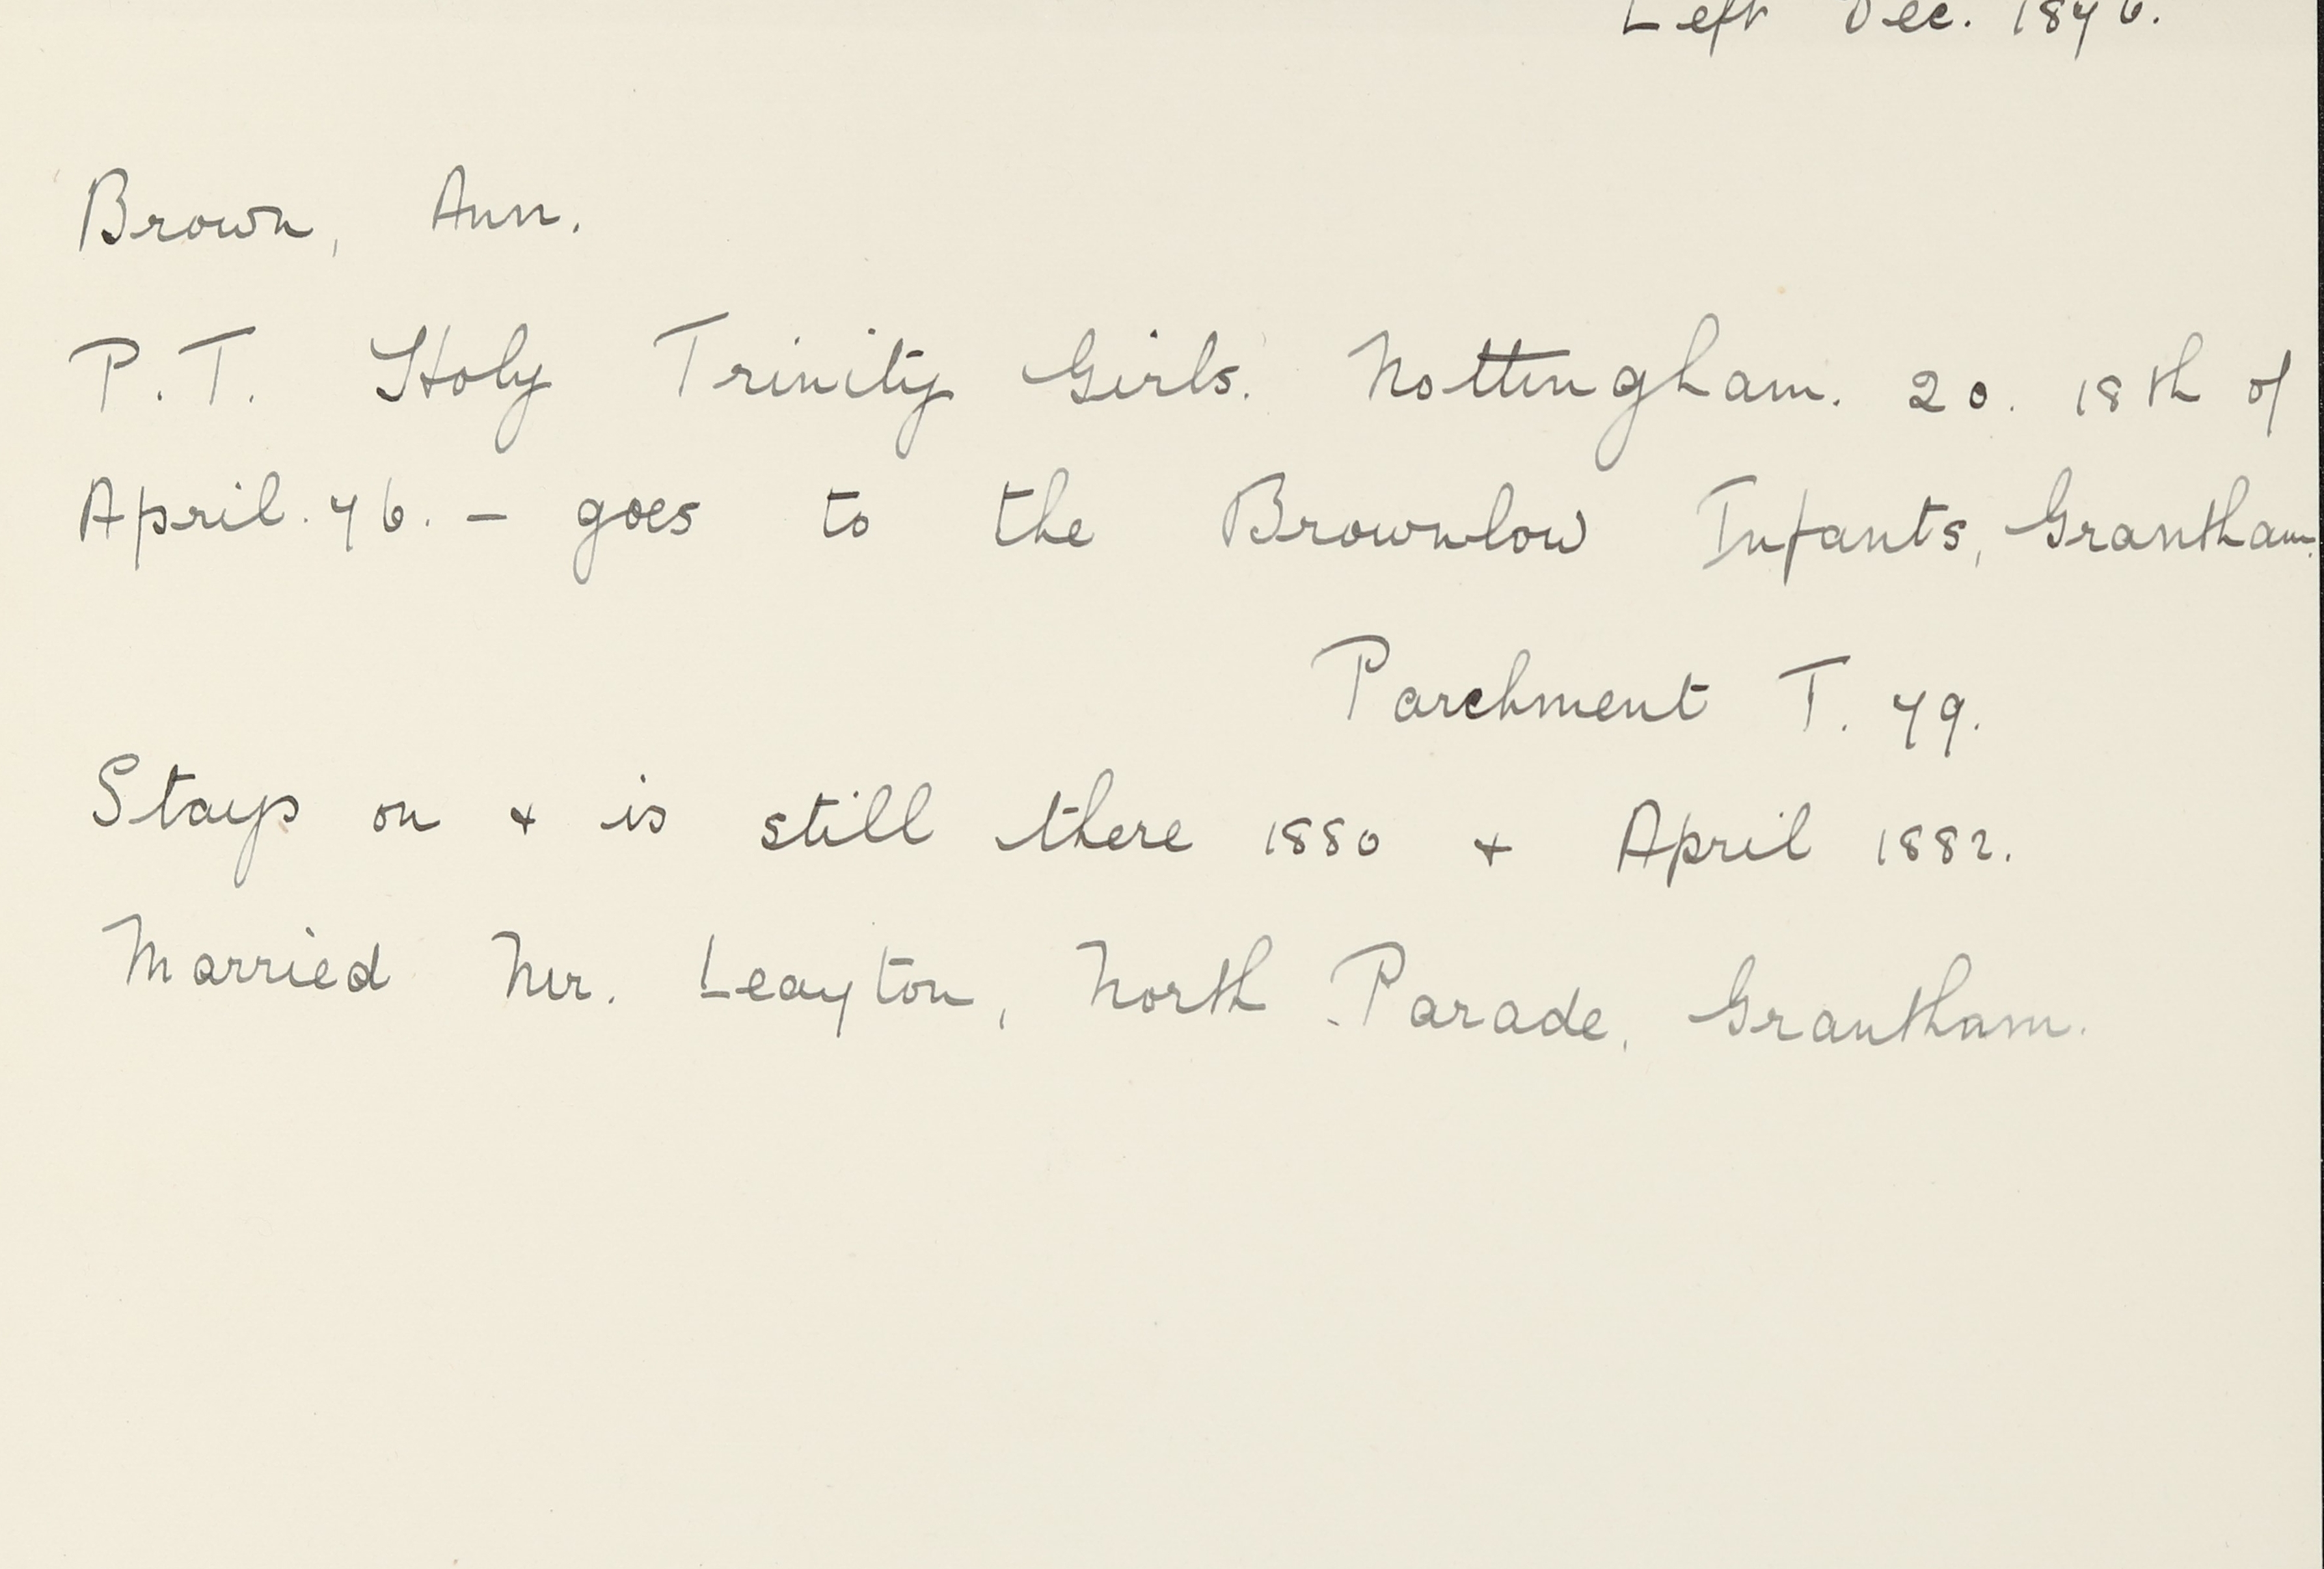 Left Dec. 1876.
Brown, Ann.
P.T. Holy Trinity Girls. Nottingham. 20. 18th of
April. 76. - goes to the Brownlow Infants, Grantham.
Parchment T. 79.
Stays on & is still there 1880 & April 1882.
Married Mr. Leayton, North Parade, Grantham.